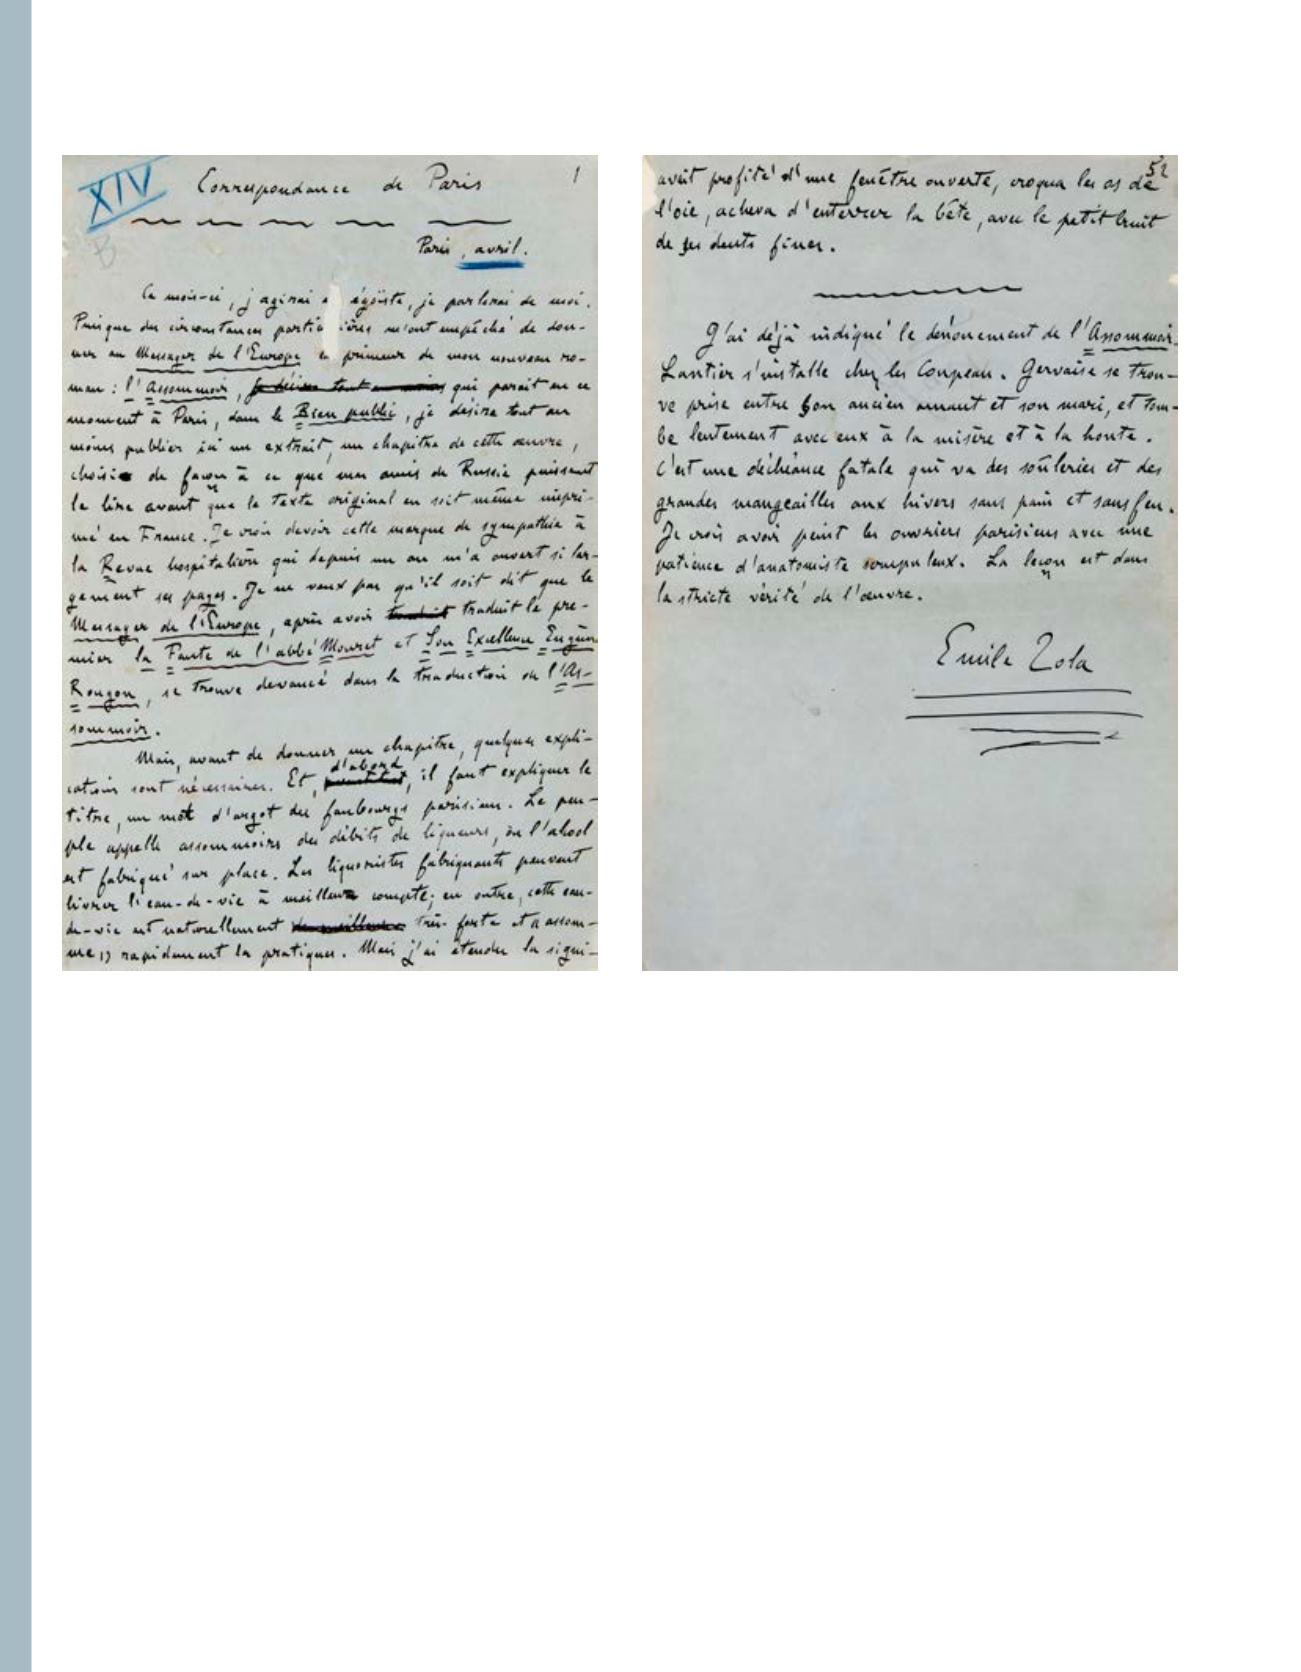 XIV
Correspondance de Paris
1
B
Paris, avril.
Ce mois-ci, j'agirai égoïste, je parlerai de moi.
Puisque des circonstances m'ont empêché de don-
ner au Messager de l'Europe primeur de mon nouveau ro-
man : l'Assommoir, je désire tout au moins qui paraît en ce
moment à Paris, dans le Bien public, je désire tout au
moins publier ici un extrait, un chapitre de cette œuvre,
choisi de façon à ce que mes amis de Russie puissent
le lire avant que le texte original en soit même impri-
mé en France. Je crois devoir cette marque de sympathie à
la Revue hospitalière qui depuis un an m'a ouvert si lar-
gement ses pages. Je ne veux pas qu'il soit dit que le
Messager de l'Europe, après avoir traduit le pre-
mier la Faute de l'abbé Mouret et Son Excellence Eugène
Rougon, se trouve devancé dans la traduction de l'As-
sommoir.
Mais, avant de donner un chapitre, quelques expli-
cations sont nécessaires. Et, d'abord, il faut expliquer le
titre, un mot d'argot des faubourgs parisiens. Le peu-
ple appelle assommoirs des débits de liqueurs, où l'alcool
est fabriqué sur place. Les liquoristes fabriquants peuvent
livrer l'eau-de-vie à meilleur compte; en outre, cette eau-
de-vie est naturellement très forte et « assom-
me » rapidement les pratiques. Mais j'ai étendu la signi-
52
avait profité d'une fenêtre ouverte, croqua les os de
l'oie, acheva d'enterrer la bête, avec le petit bruit
de ses dents fines.
J'ai déjà indiqué le dénouement de l'Assommoir.
Lantier s'installe chez les Coupeau. Gervaise se trou-
ve prise entre son ancien amant et son mari, et tom-
be lentement avec eux à la misère et à la honte.
C'est une déchéance fatale qui va des soûleries et des
grandes mangeailles aux hivers sans pain et sans feu.
Je crois avoir peint les ouvriers parisiens avec une
patience d'anatomiste scrupuleux. La leçon est dans
la stricte vérité de l'œuvre.
Emile Zola